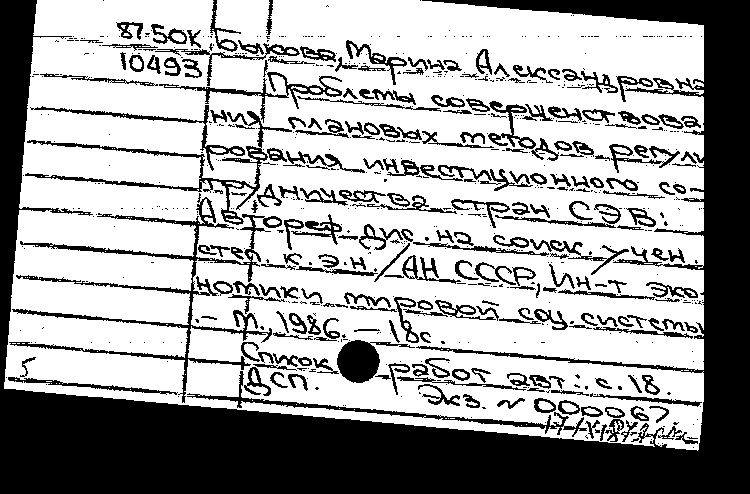 87-50К Быкова, Марина Александровна
10493 Проблемы совершенствова-
ния плановых методов регули
рования инвестиционного со-
трудничества стран СЭВ:
Автореф. дис. на соиск. учен.
степ. к.э.н. / АН СССР, Ин-т эко-
номики мировой соц. системы
.- М., 1986. - 18с.
Список работ авт.: с. 18.
5 ДСП. Экз. № 000067